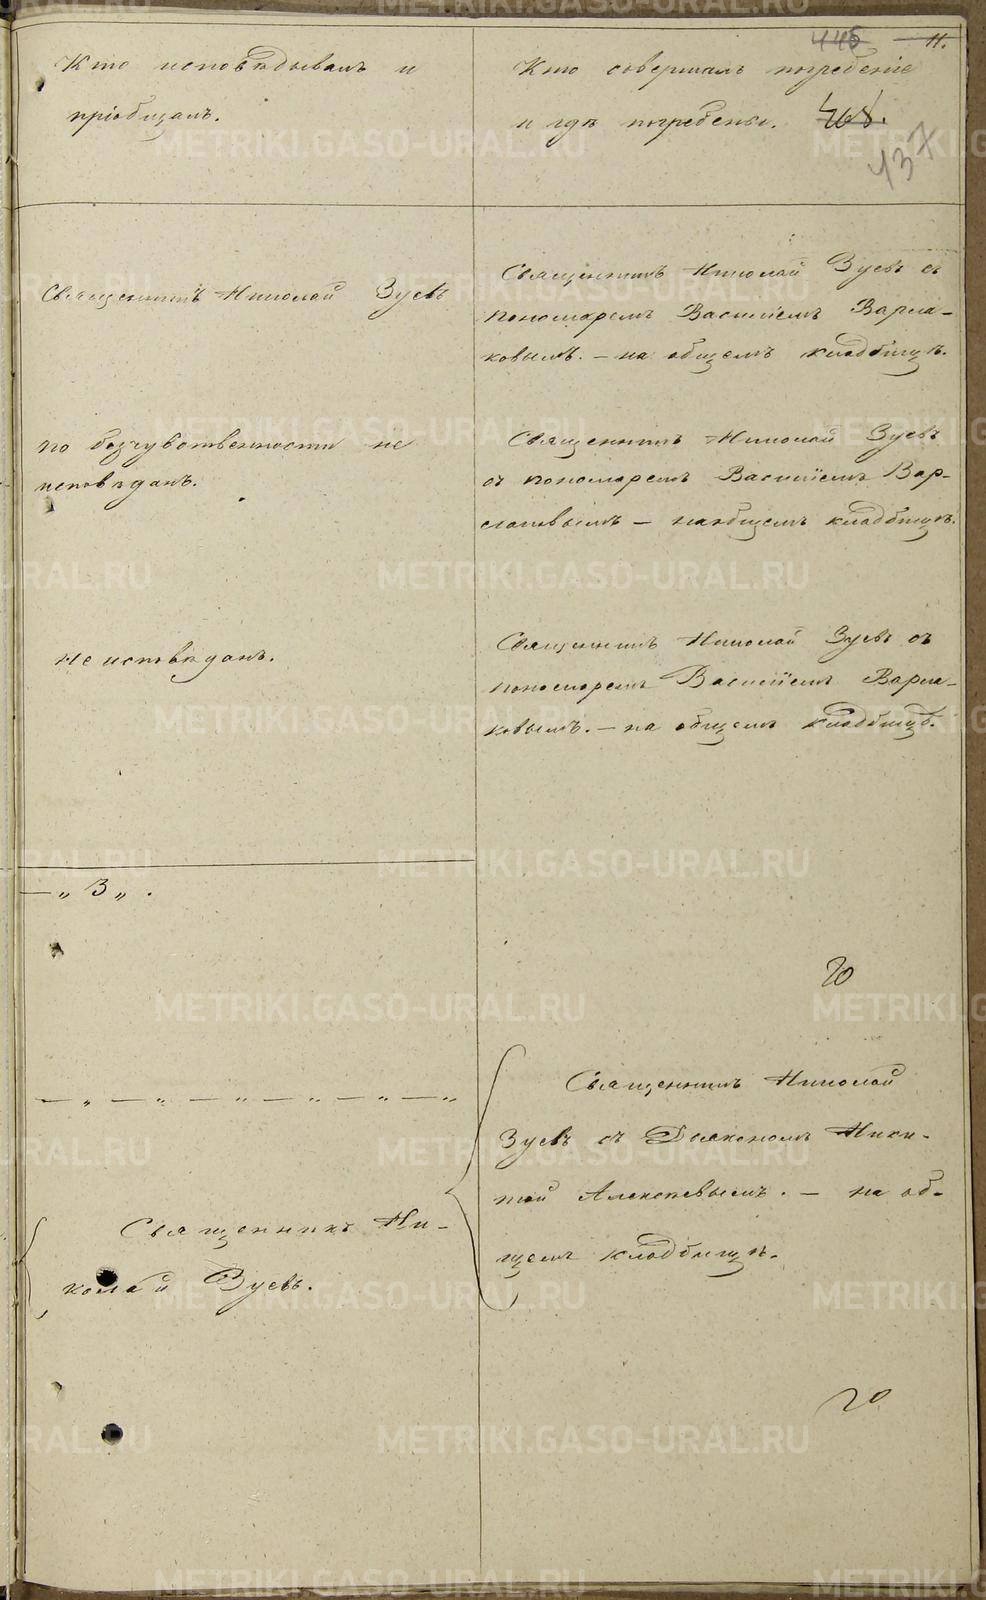 445 11.
Кто исповѣдывалъ и
пріобщалъ.
Кто совершалъ погребеніе
и гдѣ погребены. 468.
437
Священникъ Николай Зуевъ
Священникъ Николай Зуевъ съ
пономаремъ Василіемъ Варла-
ковымъ. — на общемъ кладбищѣ.
по безчувственности не
исповѣданъ.
Священникъ Николай Зуевъ
съ пономаремъ Василіемъ Вар-
лаковымъ — на общемъ кладбищѣ.
Не исповѣданъ.
Священникъ Николай Зуевъ съ
пономаремъ Василіемъ Варла-
ковымъ. — на общемъ кладбищѣ.
— „ 3 „ .
— „ — „ — „ — „ — „ — „
Священникъ Ни-
колай Зуевъ.
Священникъ Николай
Зуевъ съ Діакономъ Ники-
той Алексѣевымъ. — на об-
щемъ кладбищѣ.
METRIKI.GASO-URAL.RU